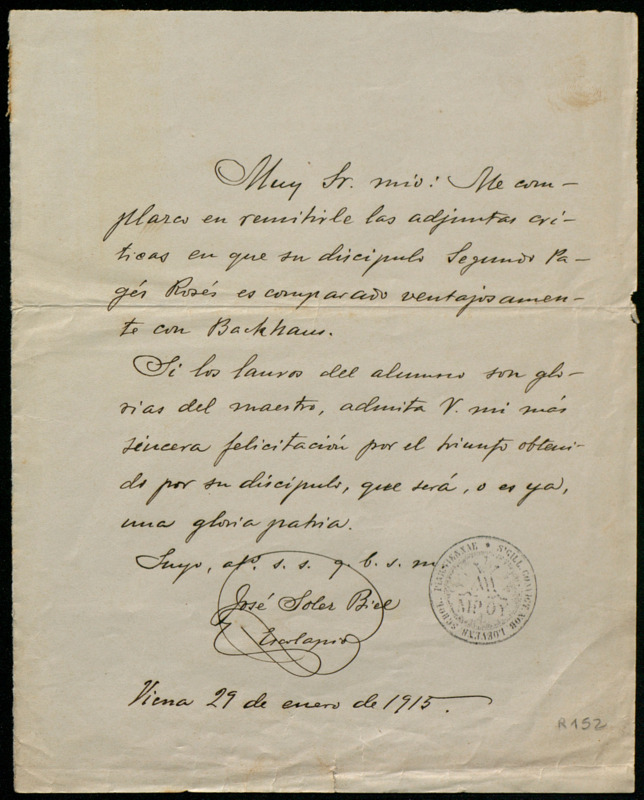 Muy Sr. mio: Me com-
plazco en remitirle las adjuntas crí-
ticas en que su discípulo Segundo Pa-
gés Rosés es comparado ventajosamen-
te con Backhaus.
Si los lauros del alumno son glo-
rias del maestro, admita V. mi más
sincera felicitación por el triunfo obteni-
do por su discípulo, que será, o es ya,
una gloria patria.
Suyo, afº. s. s. q. b. s. m
José Soler Biel
Escolapio
SIGILL CONVICT NOB SCHOL
ΜΡ ΘΥ
Viena 29 de enero de 1915.
R152